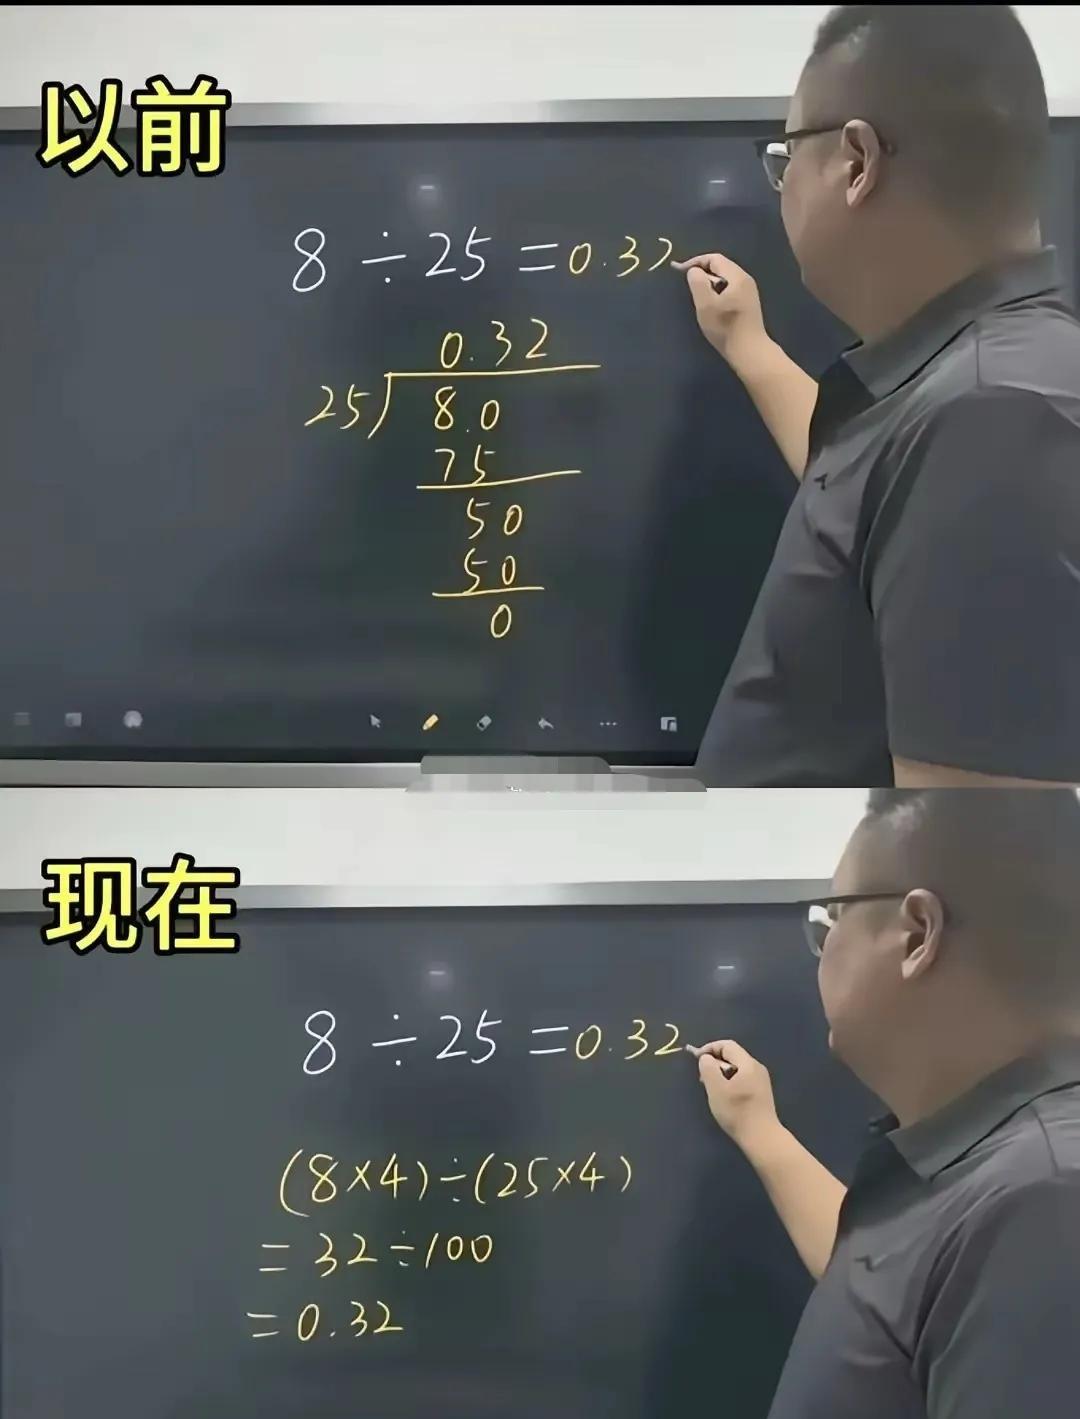 以前
8 ÷ 25 = 0.32
0.32
25) 8.0
75
50
50
0
现在
8 ÷ 25 = 0.32
(8×4)÷(25×4)
= 32÷100
= 0.32